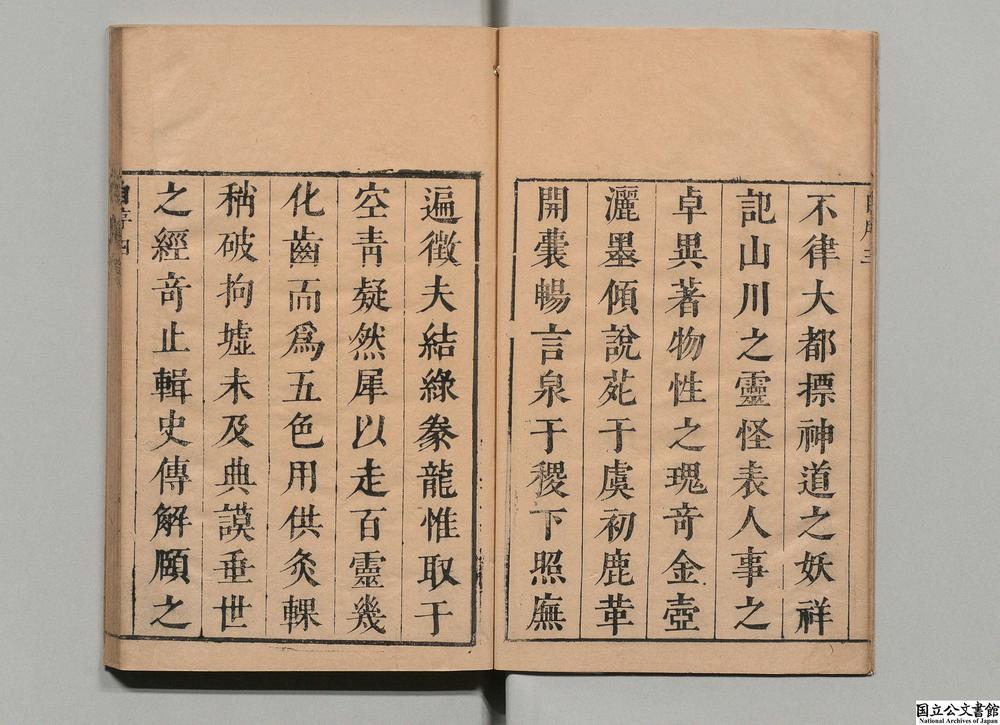 自序三
不律大都摽神道之妖祥
記山川之靈怪表人事之
卓異著物性之瑰奇金壺
灑墨傾說苑于虞初鹿革
開囊暢言泉于稷下照廡
遍徵夫結綠豢龍惟取于
空青疑然犀以走百靈幾
化齒而爲五色用供炙輠
稍破拘墟未及典謨垂世
之經竒止輯史傳解頤之
自序四
国立公文書館
National Archives of Japan